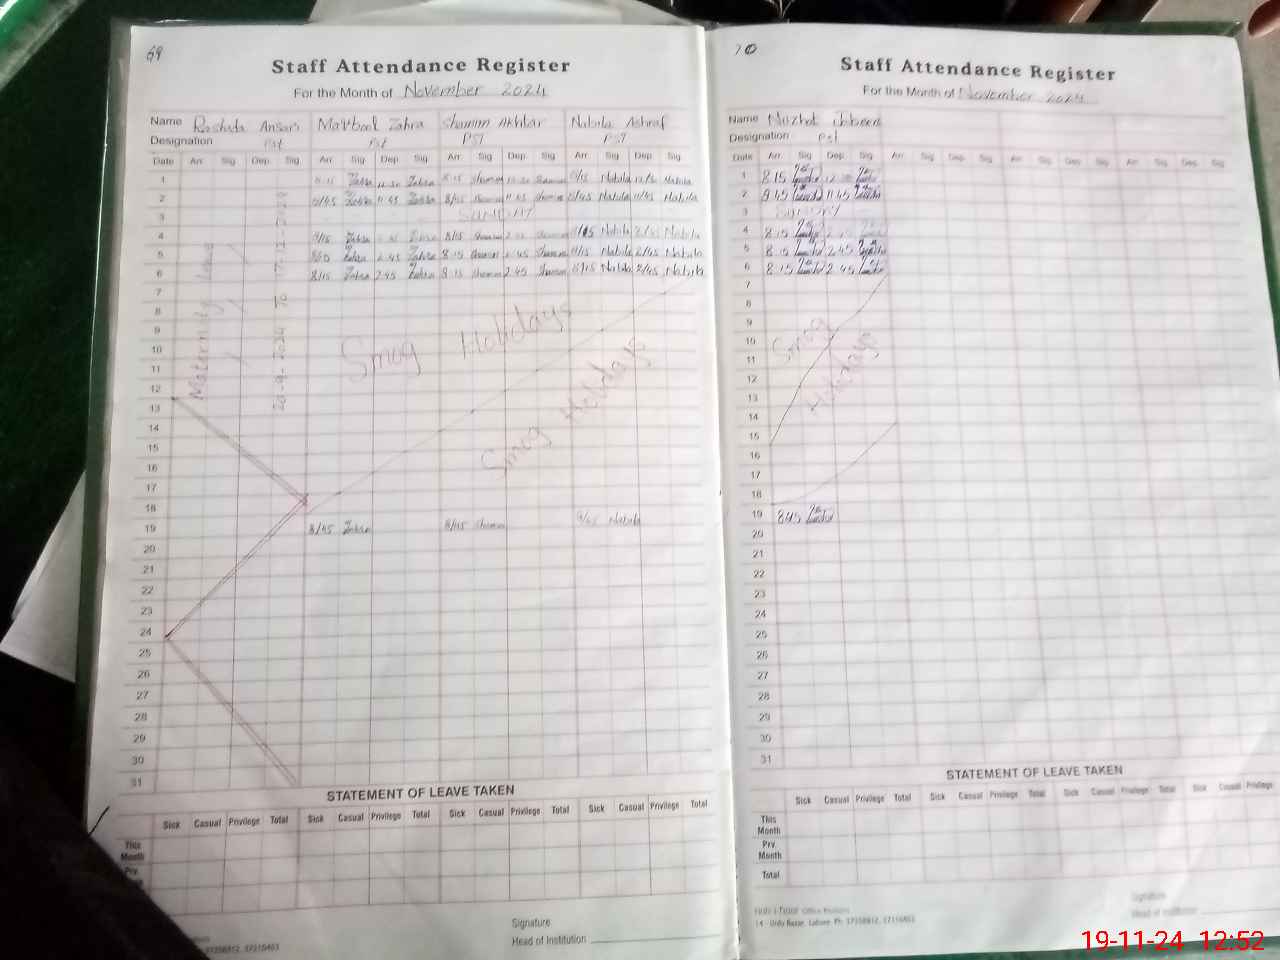 69
Staff Attendance Register
For the Month of November 2024
Name Rashida Ansari Maqbool Zahra Shamim Akhtar Nabila Ashraf
Designation Pst Pst PST PST
Date Arr Sig Dep Sig Arr Sig Dep Sig Arr Sig Dep Sig Arr Sig Dep Sig
1 Zahra Zahra 8:15 Shamim Shamim Nabila Nabila
2 Zahra 11:45 Zahra 8/45 Shamim 11:45 Shamim 8/45 Nabila 11/45 Nabila
3 SUNDAY
4 8/15 Zahra 8/15 Shamim Shamim Nabila 2/45 Nabila
5 Zahra 2:45 Zahra 8:15 Shamim 2:45 Shamim 8/15 Nabila 2/45 Nabila
6 8/15 Zahra 2:45 Zahra 8:15 Shamim 2:45 Shamim 8/15 Nabila 2/45 Nabila
7
8
9
10
11
12
13
14
15
16
17
18
19 8/45 Zahra 8/45 Shamim Nabila
20
21
22
23
24
25
26
27
28
29
30
31
Maternity leave
20-9-2024 to
Smog Holidays
Smog Holidays
STATEMENT OF LEAVE TAKEN
Sick Casual Privilege Total Sick Casual Privilege Total Sick Casual Privilege Total Sick Casual Privilege Total
This Month
Prv.
Signature
Head of Institution
37358912, 37315403
70
Staff Attendance Register
For the Month of November 2024
Name Nuzhat
Designation Pst
Date Arr Sig Dep Sig Arr Sig Dep Sig Arr Sig Dep Sig Arr Sig Dep Sig
1 8:15
2 11:45
3 SUNDAY
4 8:15
5 8:15 2:45
6 8:15 2:45
7
8
9
10
11
12
13
14
15
16
17
18
19 8:45
20
21
22
23
24
25
26
27
28
29
30
31
Smog
Holidays
STATEMENT OF LEAVE TAKEN
Sick Casual Privilege Total Sick Casual Privilege Total Sick Casual Privilege Total Sick Casual Privilege
This Month
Prv. Month
Total
Signature
Head of Institution
Lahore Ph: 37358912, 37315403
19-11-24 12:52